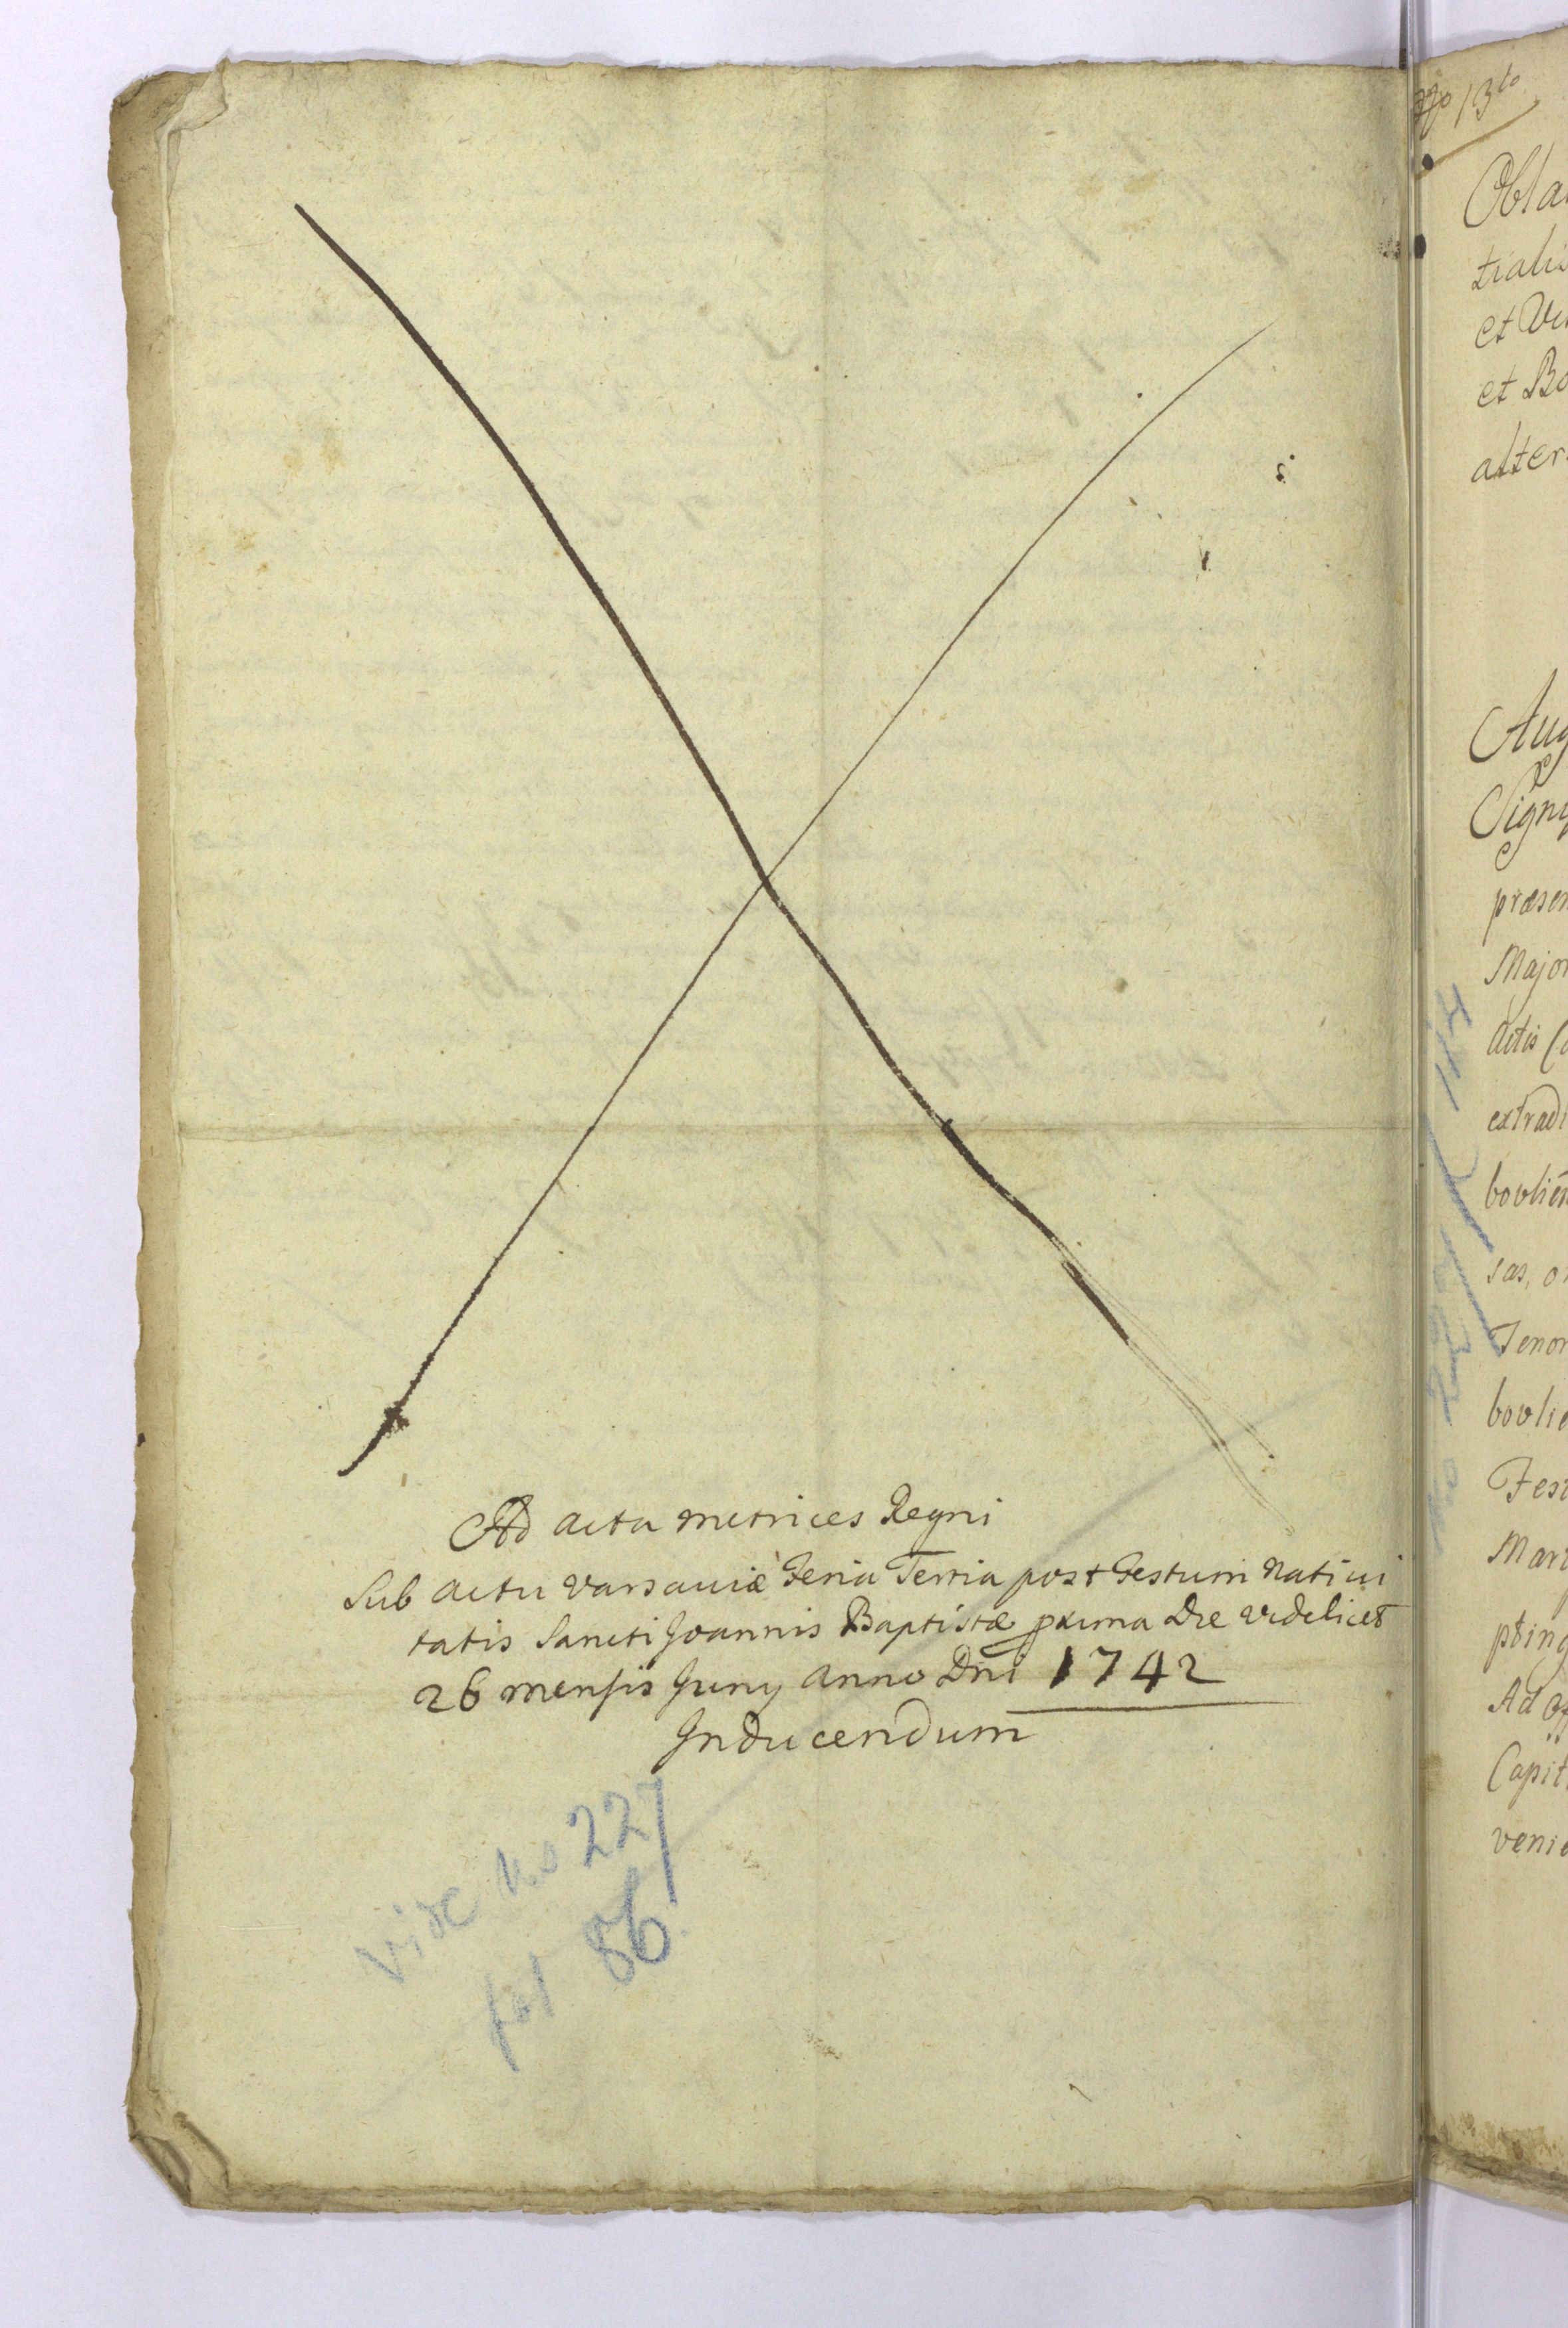 Ad acta metrices Regni
Sub actu Varsaviæ Feria Tertia post Festum Nativi
tatis Sancti Joannis Baptistæ pxima Die videlicet
26 mensis Juny Anno Dni 1742
Inducendum
vide No 227
fol 86.
13to
Obla
tialis
et Vi
et Bo
alter
Aug
Signy
præsen
Major
actis
extradi
bovlien
sas, o
Tenor
bovlie
Fest
Mari
pting
Ad Off
Capit
venie